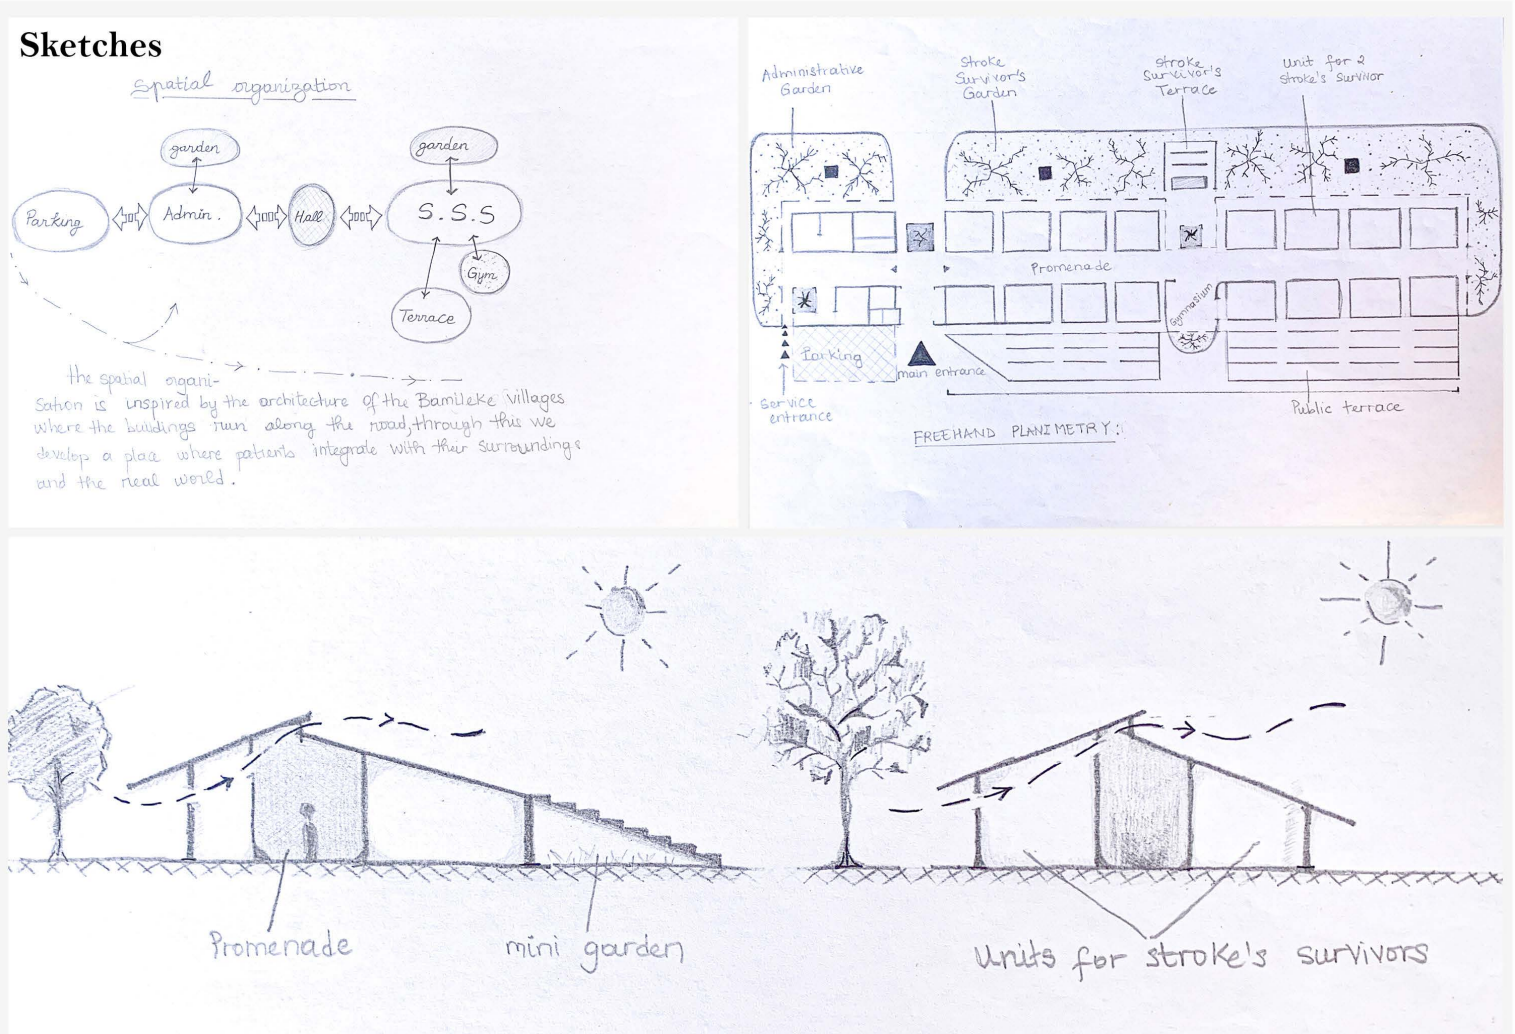 Sketches
Spatial organization
garden
garden
Parking
Admin.
Hall
S.S.S
Gym
Terrace
the spatial organi-
sation is inspired by the architecture of the Bamileke villages
where the buildings run along the road, through this we
develop a place where patients integrate with their surroundings
and the real world.
Administrative
Garden
Stroke
Survivor's
Garden
Stroke
Survivor's
Terrace
Unit for 2
Stroke's survivor
Promenade
Gymnasium
Parking
main entrance
Service
entrance
Public terrace
FREEHAND PLANIMETRY:
Promenade
mini garden
Units for stroke's survivors